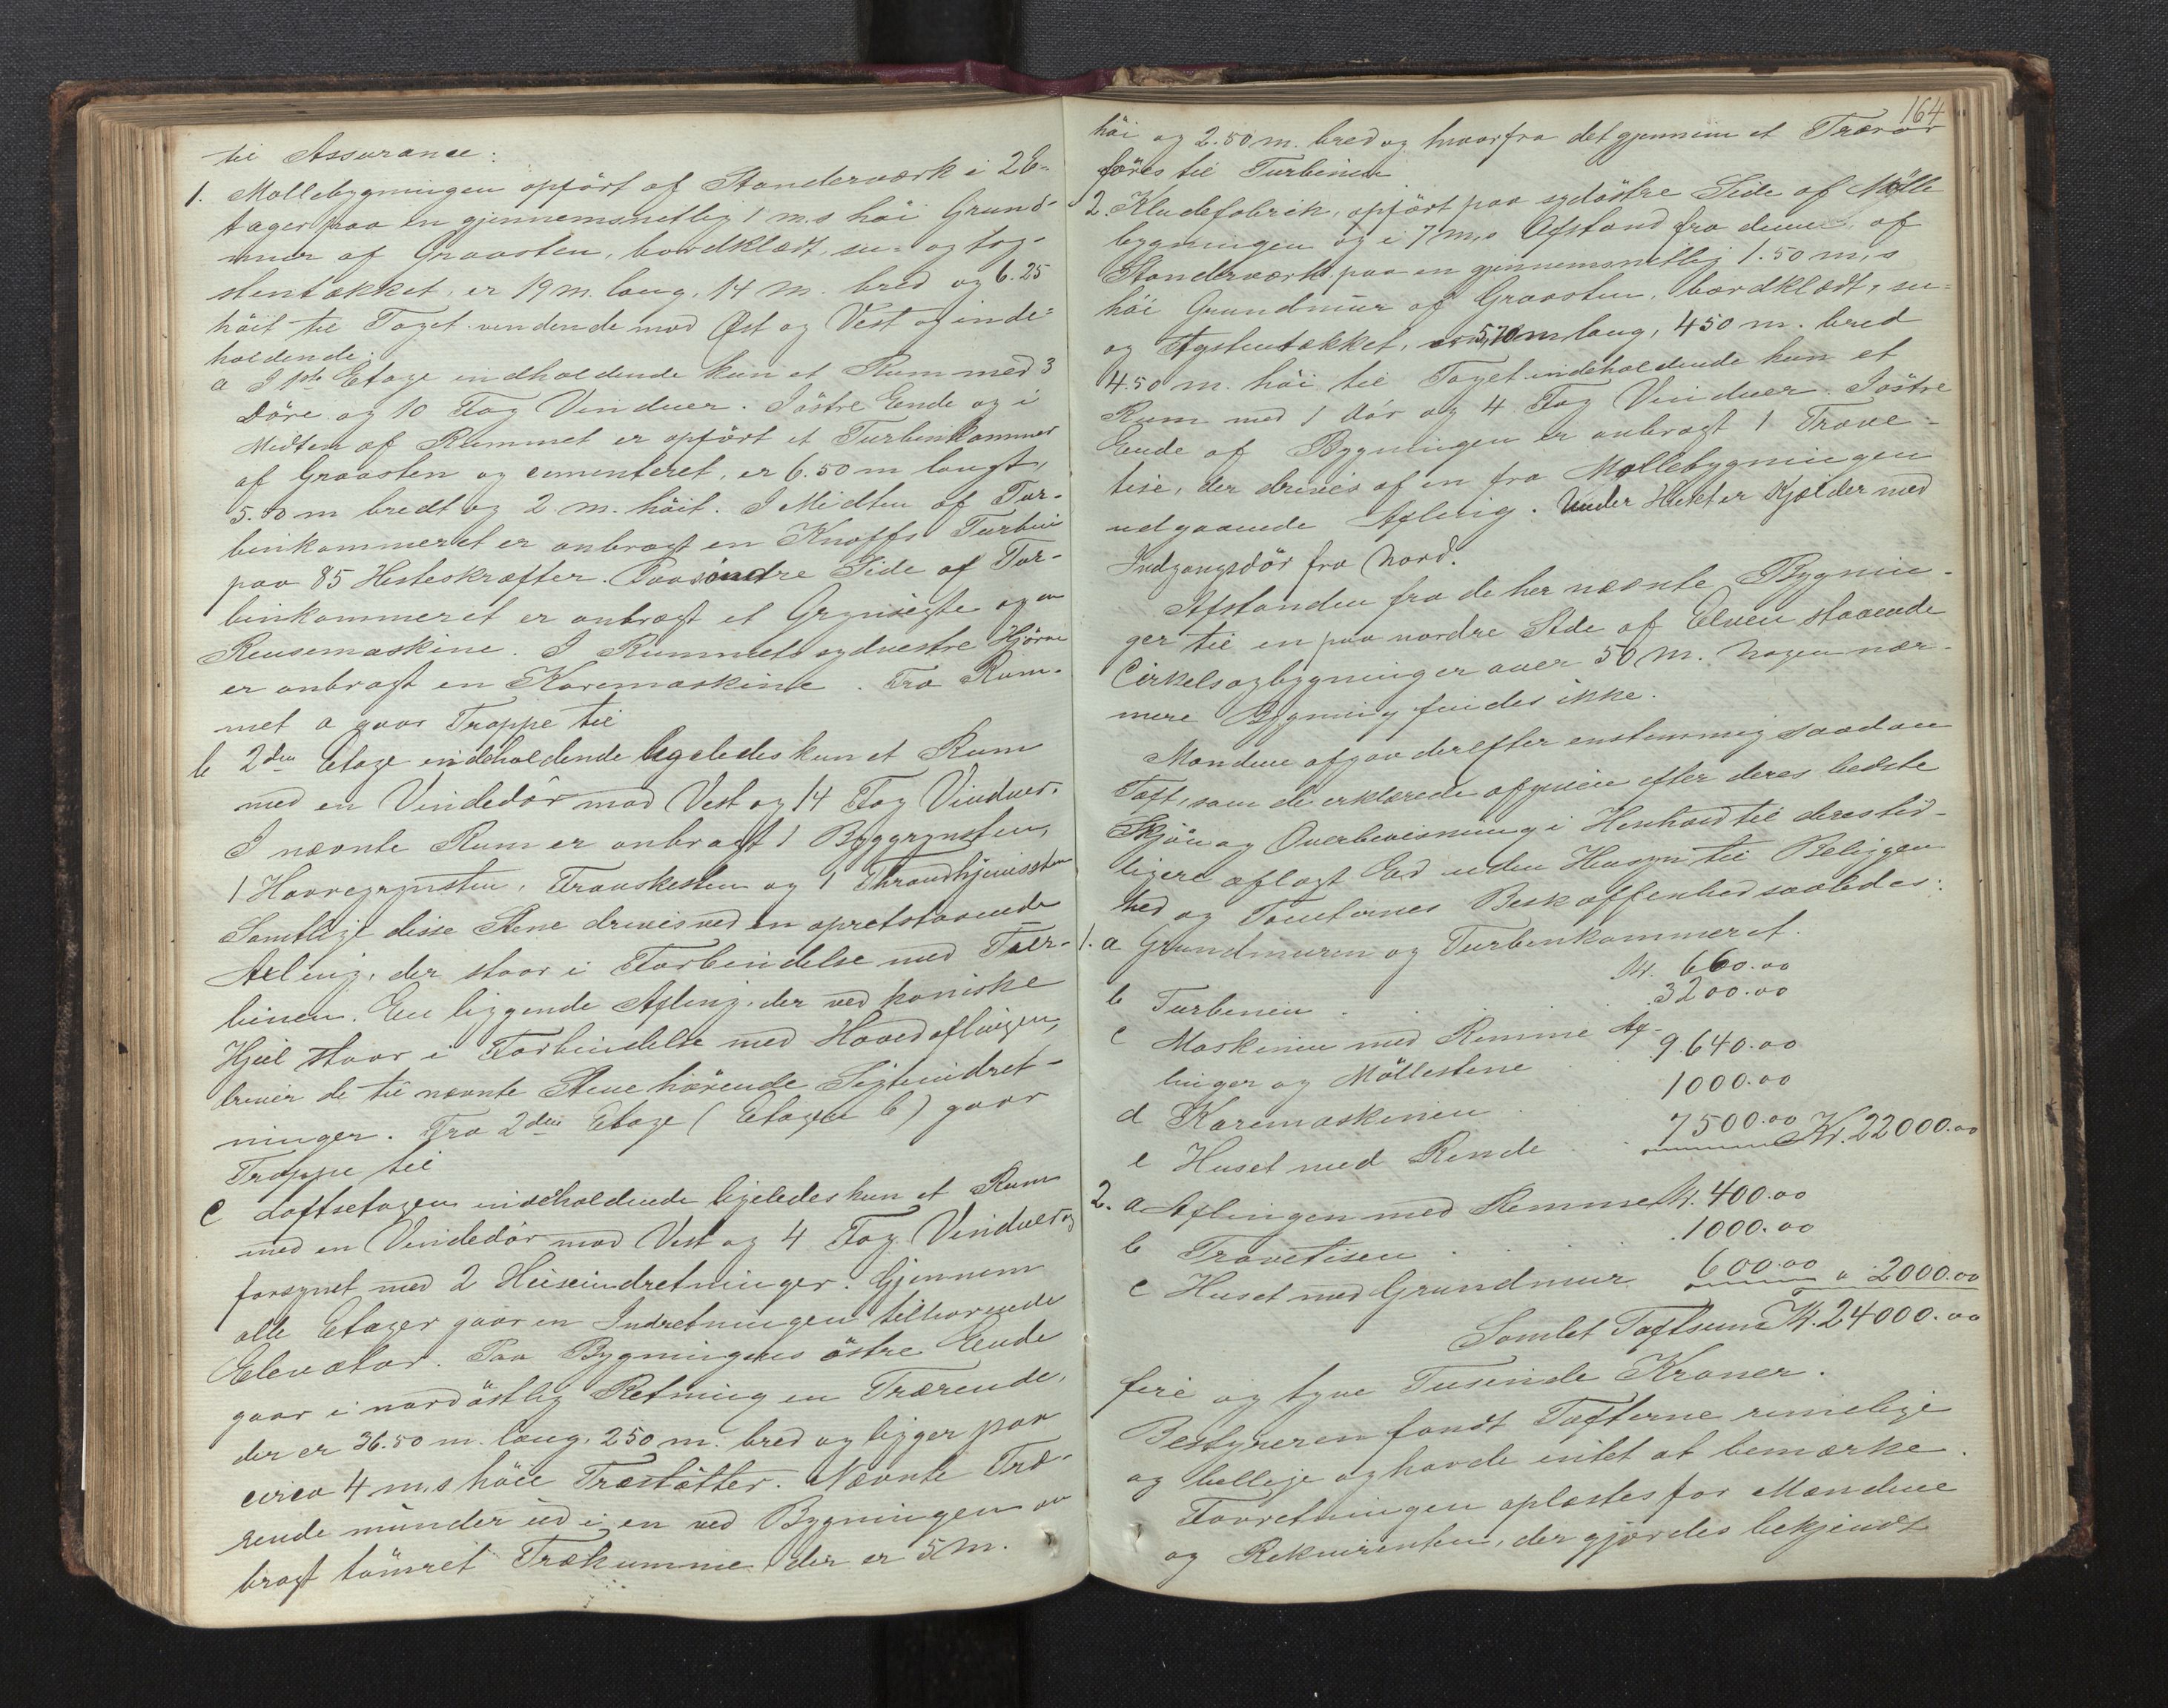 til Assurance:
1. Møllebygningen opført af Standerværk i 2 E-
tager paa en gjennemsnitlig 1 m.s höi Grund-
mur af Graasten, bordklædt, su- og tag-
stentækket, er 19 m. lang, 14 m. bred og 6.25
höit til Taget vendende mod Øst og Vest og inde-
holdende:
a I 1ste Etage indholdende kun et Rum med 3
Döre og 10 Fag Vinduer. I östre Ende og i
Midten af Rummet er opført et Turbinkammer
af Graasten og cementeret, er 6.50 m langt,
5.50 m bredt og 2 m. höit. I Midten af Tur-
binkammeret er anbragt en Knoffs Turbin
paa 85 Hestekræfter. Paa söndre Side af Tur-
binkammeret er anbragt et Grynsigte og en
Rensemaskine. I Rummets sydvestre Hjörne
er anbragt en Karemaskine. Fra Rum-
met a gaar Trappe til
b 2den Etage indeholdende ligeledes kun et Rum
med en Vindedör mod Vest og 14 Fag Vinduer.
I nævnte Rum er anbragt 1 Byggrynsten,
1 Havregrynsten, Franskesten og 1 Throndhjemssten
Samtlige disse Stene drives ved en opretstaaende
Axling, der staar i Forbindelse med Tur-
binen. En liggende Axling, der ved koniske
Hjul staar i Forbindelse med Hovedaxlingen,
driver de til nævnte Stene hörende Sigteindret-
ninger. Fra 2den Etage (Etagen b) gaar
Trappe til
c Loftsetagen indeholdende ligeledes kun et Rum
med en Vindedör mod Vest og 4 Fag Vinduer og
forsynet med 2 Heiseindretninger. Gjennem
alle Etager gaar en Indretningen tilhörende
Elevator. Paa Bygningens östre Ende
gaar i nordöstlig Retning en Trærende,
der er 36.50 m. lang, 250 m. bred og ligger paa
circa 4 m.s höie Træstötter. Nævnte Træ-
rende munder ud i en ved Bygningen an
bragt tömret Trækumme der er 5 m.
164
höi og 2.50 m. bred og hvorfra det gjennem et Trærör
föres til Turbinen
2. Kludefabrik, opført paa sydöstre Side af Mölle
bygningen og i 7 m.s Afstand fra denne, af
Standerværk paa en gjennemsnitlig 1.50 m.s
höi Grundmur af Graasten, bordklædt, su-
og tagstentækket, er 5,70 m lang, 450 m. bred
4.50 m. höi til Taget indeholdende kun et
Rum med 1 Dör og 4 Fag Vinduer. I östre
Ende af Bygningen er anbragt 1 Trave-
tise, der drives af en fra Møllebygningen
udgaaende Axling. Under Huset er Kjælder med
Indgangsdör fra Nord.
Afstanden fra de her nævnte Bygnin-
ger til en paa nordre Side af Elven staaende
Cirkelsagbygning er over 50 m. Nogen nær-
mere Bygning findes ikke.
Mændene afgav derefter enstemmig saadan
Taxt, som de erklærede afgiven efter deres bedste
Skjön og Overbevisning i Henhold til deres tid-
ligere aflagt Ed uden Hensyn til Beliggen
hed og Tomternes Beskaffenhed saaledes:
1. a Grundmuren og Turbinkammeret.
Kr. 660.00
b Turbinen . . . 3200.00
c Maskinen med Remme Ax-
linger og Möllestene 9.640.00
d Karemaskinen . . 1000.00
e Huset med Rende . . 7500.00 Kr. 22000.00
2. a Axlingen med Remme Kr. 400.00
b Travetisen . . . . 1000.00
c Huset med Grundmur 600.00 " 2000.00
Samlet Taxtsum Kr. 24000.00
fire og tyve Tusinde Kroner.
Bestyreren fandt Taxterne rimelige
og billige og havde intet at bemærke.
Forretningen oplæstes for Mændene
og Rekvirenten, der gjordes bekjendt